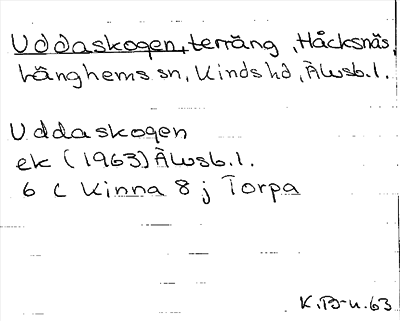 Uddaskogen, terräng, Håcksnäs,
Länghems sn, Kinds hd, Älvsb. l.
Uddaskogen
ek (1963) Älvsb. l.
6 C Kinna 8 j Torpa
K. B-n. 63